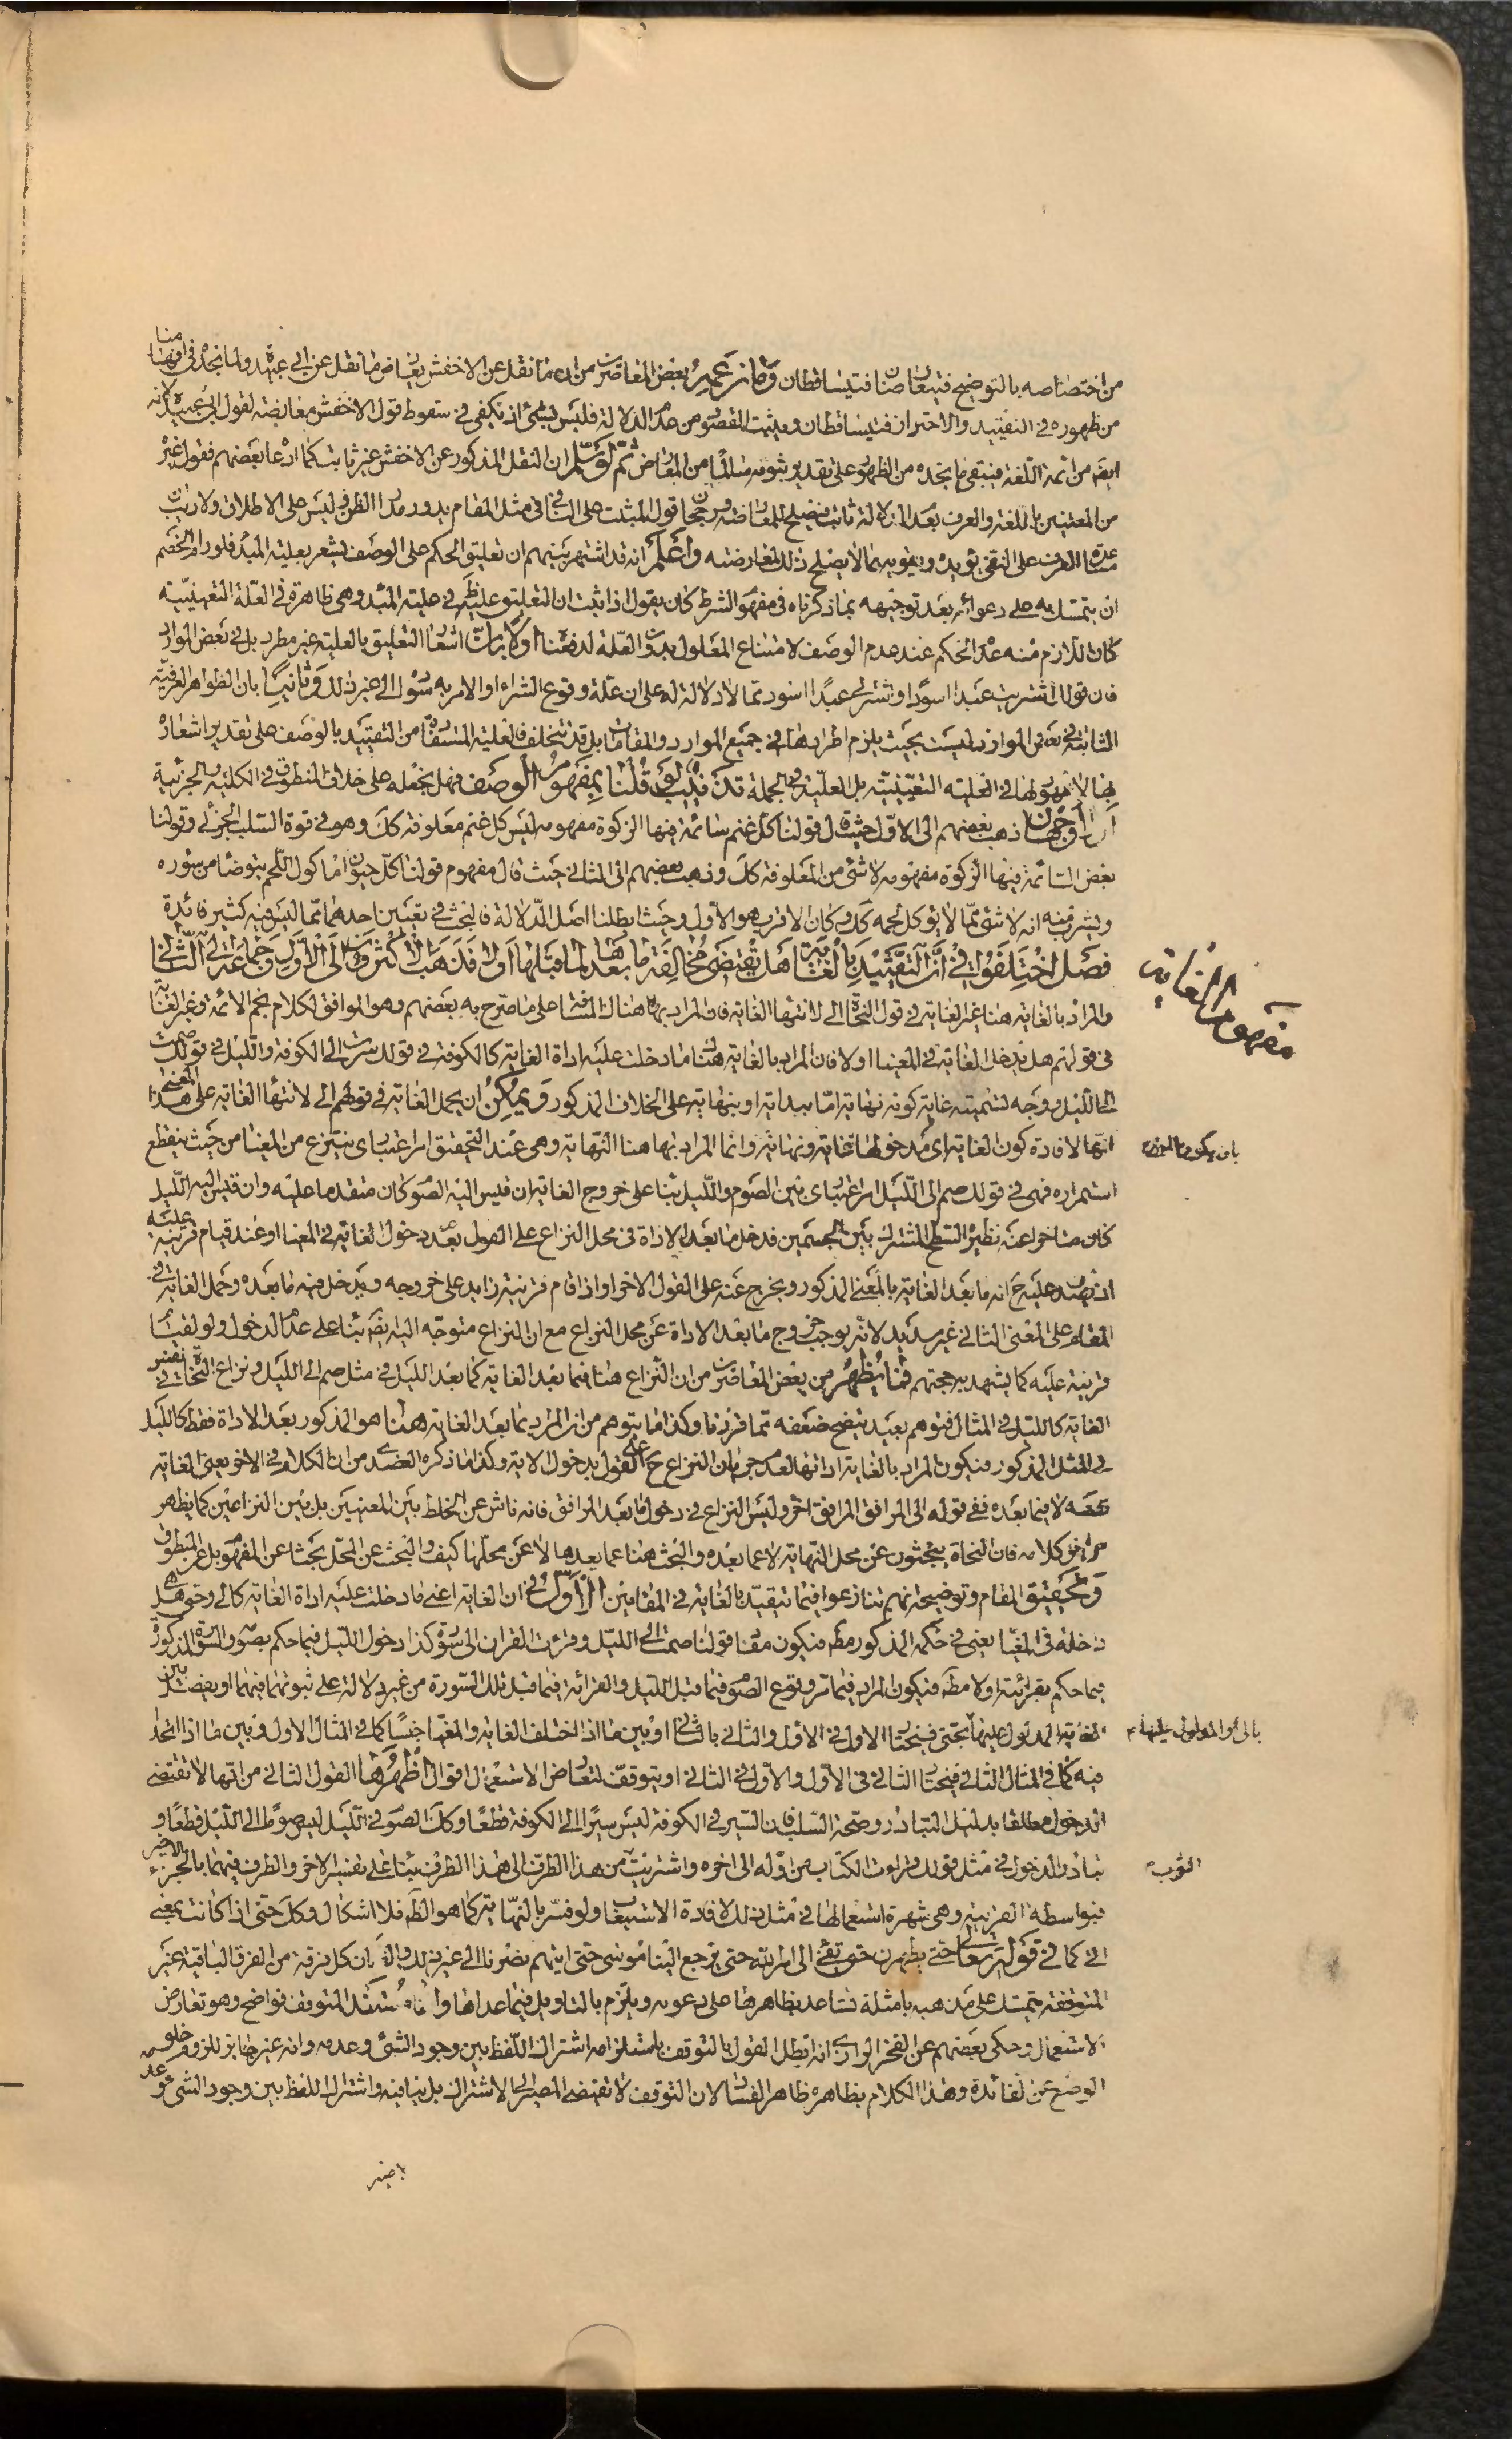 من اختصاصه بالتوضيح فيتعارضان فيتساقطان وما زعمه بعض المعاصرين من ان ما نقل عن الاخفش يعارض ما نقل عن ابي عبيدة ولما نجده في افهامنا
من ظهوره في التقييد والاحتراز فيتساقطان ويثبت المقصود من عدم الدلالة فليس بشئ اذ يكفي في سقوط قول الاخفش معارضته لقول ابي عبيدة لانه
ايضا من ائمة اللغة فيبقى ما نجده من الظهور على تقدير ثبوته سالما من المعارض ثم لو سلم ان النقل المذكور عن الاخفش غير ثابت كما ادعاه بعضهم فقول غيره
من المعتنين باللغة والعرف بعدم الدلالة ثابت فيصلح للمعارضة ورجحان قول المثبت على النافي في مثل المقام يدور مدار الظن وليس على الاطلاق ولا ريب
مساعدة العرف على النفي يؤيده ويقويه بما لا يصلح ذلك لمعارضته واعلم انه قد اشتهر بينهم ان تعليق الحكم على الوصف يشعر بعلية المبدء فلو رام الخصم
ان يتمسك به على دعواه بعد توجيهه بما ذكرناه في مفهوم الشرط كان يقول اذا ثبت ان التعليق عليه ظهر في علية المبدء وهي ظاهرة في العلة التعيينية
كان اللازم منه عدم الحكم عند عدم الوصف لامتناع المعلول بدون العلة لدفعناه اولا بان اشعار التعليق بالعلية غير مطرد بل في بعض الموارد
فان قولك اشتريت عبدا اسودا واشتر لي عبدا اسود مما لا دلالة له على ان علة وقوع الشراء او الامر به سواده الى غير ذلك وثانيا بان الظواهر العرفية
الثابتة في بعض الموارد ليست بحيث يلزم اطرادها في جميع الموارد والمقامات بل قد تتخلف فالعلية المستفادة من التقييد بالوصف على تقدير اشعاره
بها لا ظهور لها في العلية التعيينية بل العلية في الجملة تذنيب لو قلنا بمفهوم الوصف فهل يجعله على خلاف المنطوق في الكلية والجزئية
او لا وجهان ذهب بعضهم الى الاول حيث قال في قولنا كل غنم سائمة فيها الزكوة مفهومه ليس كل غنم معلوفة كك وهو في قوة السلب الجزئي وقولنا
بعض السائمة فيها الزكوة مفهومه لا شئ من المعلوفة كك وذهب بعضهم الى الثاني حيث قال مفهوم قولنا كل حيوان ماكول اللحم يتوضأ من سؤره
ويشرب منه انه لا شئ مما لا يؤكل لحمه كك وكان الاقرب هو الاول وحيث ابطلنا اصل الدلالة فالبحث في تعيين احدهما مما ليس فيه كثير فائدة
فصل اختلفوا في ان التقييد بالغاية هل تقتضي مخالفة ما بعدها لما قبلها او لا فذهب الاكثرون الى الاول وجماعة الى الثاني
والمراد بالغاية هنا غير الغاية في قول النحاة الى لانتهاء الغاية فان المراد بها هناك المسافة على ما صرح به بعضهم وهو الموافق لكلام نجم الائمة وغير الغاية
في قولهم هل تدخل الغاية في المغيا او لا فان المراد بالغاية هناك ما دخلت عليه اداة الغاية كالكوفة في قولك سرت الى الكوفة والليل في قولك صمت
الى الليل ووجه تسميته غاية كونه نهاية اما ببدايته او بنهايته على الخلاف المذكور ويمكن ان يحمل الغاية في قولهم الى لانتهاء الغاية على هذا المعنى
انها لافادة كون الغاية اي مدخولها غاية ونهاية وانما المراد بها هنا النهاية وهي عند التحقيق امر اعتباري ينتزع من المغيا من حيث ينقطع
استمراره فهي في قولك صم الى الليل امر اعتباري بين الصوم والليل بناء على خروج الغاية ان قيس اليه الصوم كان متقدما عليه وان قيس اليه الليل
كان متاخرا عنه نظير السطح المشترك بين الجسمين فدخل ما بعد الاداة في محل النزاع على القول بعدم دخول الغاية في المغيا او عند قيام قرينة عليه
اذ يصدق عليه ح انه ما بعد الغاية بالمعنى المذكور ويخرج عنه على القول الاخر او اذا قام قرينة زايد على خروجه ويدخل فيه ما بعده وحمل الغاية في
المقام على المعنى الثاني غير سديد لانه يوجب خروج ما بعد الاداة عن محل النزاع مع ان النزاع متوجه اليه ايضا بناء على عدم الدخول ولو لقيام
قرينة عليه كما يشهد به حجتهم فما يظهر من بعض المعاصرين من ان النزاع هنا فيما بعد الغاية كما بعد الليل في مثل صم الى الليل ونزاع النحاة في نفس
الغاية كالليل في المثال فتوهم بعيد يتضح ضعفه مما قررنا وكذا ما يتوهم من ان المراد بما بعد الغاية هنا هو المذكور بعد الاداة فقط كالليل
في المثل المذكور فيكون المراد بالغاية اداتها لعدم جريان النزاع ح على القول بدخول الاية وكذا ما ذكره العضدي من ان الكلام في الاخر يعني الغاية
نفسه لا فيما بعده ففي قوله الى المرافق المرافق اخر وليس النزاع في دخول ما بعد المرافق فانه ناش عن الخلط بين المعنيين بل بين النزاعين كما يظهر
من اخر كلامه فان النحاة يبحثون عن محل النهاية لا عما بعده والبحث هنا عما بعدها لا عن محلها كيف والبحث عن المحل بحث عن المفهوم بل عن المنطوق
وتحقيق المقام وتوضيحه انهم تنازعوا فيما تقيد بالغاية في المقامين الاول في ان الغاية اعني ما دخلت عليه اداة الغاية كالى وحتى هل هي
داخلة في المغيا يعني في حكمه المذكور مطلقا فيكون مفاد قولنا صمت الى الليل وقرأت القران الى سورة كذا دخول الليل فيما حكم بصومه والسورة المذكورة
فيما حكم بقرائته او لا مطلقا فيكون المراد فيما مر وقوع الصوم فيما قبل الليل والقرائة فيما قبل تلك السورة من غير دلالة على ثبوتهما فيهما او يفصل بين
الغاية المدلول عليها بحتى فيختار الاول في الاول والثاني بالثاني او بين ما اذا اختلف الغاية والمغيا جنسا كما في المثال الاول وبين ما اذا اتحدا
فيه كما في المثال الثاني فيختار الثاني في الاول والاول في الثاني او يتوقف لتعارض الاستعمال اقوال اظهرها القول الثاني من انها لا تقتضي
الدخول مطلقا بدليل التبادر وصحة السلب فان السير في الكوفة ليس سيرا الى الكوفة قطعا وكك الصوم في الليل ليس صوما الى الليل قطعا و
تبادر الدخول في مثل قولك قرات الكتاب من اوله الى اخره واشتريت من هذا الطرف الى هذا الطرف بناء على تفسير الاخر والطرف فيهما بالجزء الاخير
فبواسطة القرينة وهي شهرة استعمالها في مثل ذلك لافادة الاستيعاب ولو فسر بالنهاية كما هو الظ فلا اشكال وكك حتى اذا كانت بمعنى
الى كما في قوله تعالى حتى يطهرن حتى تفئ الى امر الله حتى يرجع الينا موسى حتى اتيهم نصرنا الى غير ذلك والظ ان كل فرقة من الفرق الباقية غير
المتوقفة يتمسك على مذهبه بامثلة تساعد بظاهرها على دعويه ويلزم بالتاويل فيما عداها واما مستند المتوقف فواضح وهو تعارض
الاستعمال وحكى بعضهم عن الفخر الرازي انه ابطل القول بالتوقف باستلزامه اشتراك اللفظ بين وجود الشئ وعدمه وانه غير جايز للزوم خلو
الوضع عن الفائدة وهذا الكلام بظاهره ظاهر الفساد لان التوقف لا تقتضي المصير الى الاشتراك بل ينافيه واشتراك اللفظ بين وجود الشئ وعدمه
مفهوم الغاية
بان يكون
الثوب